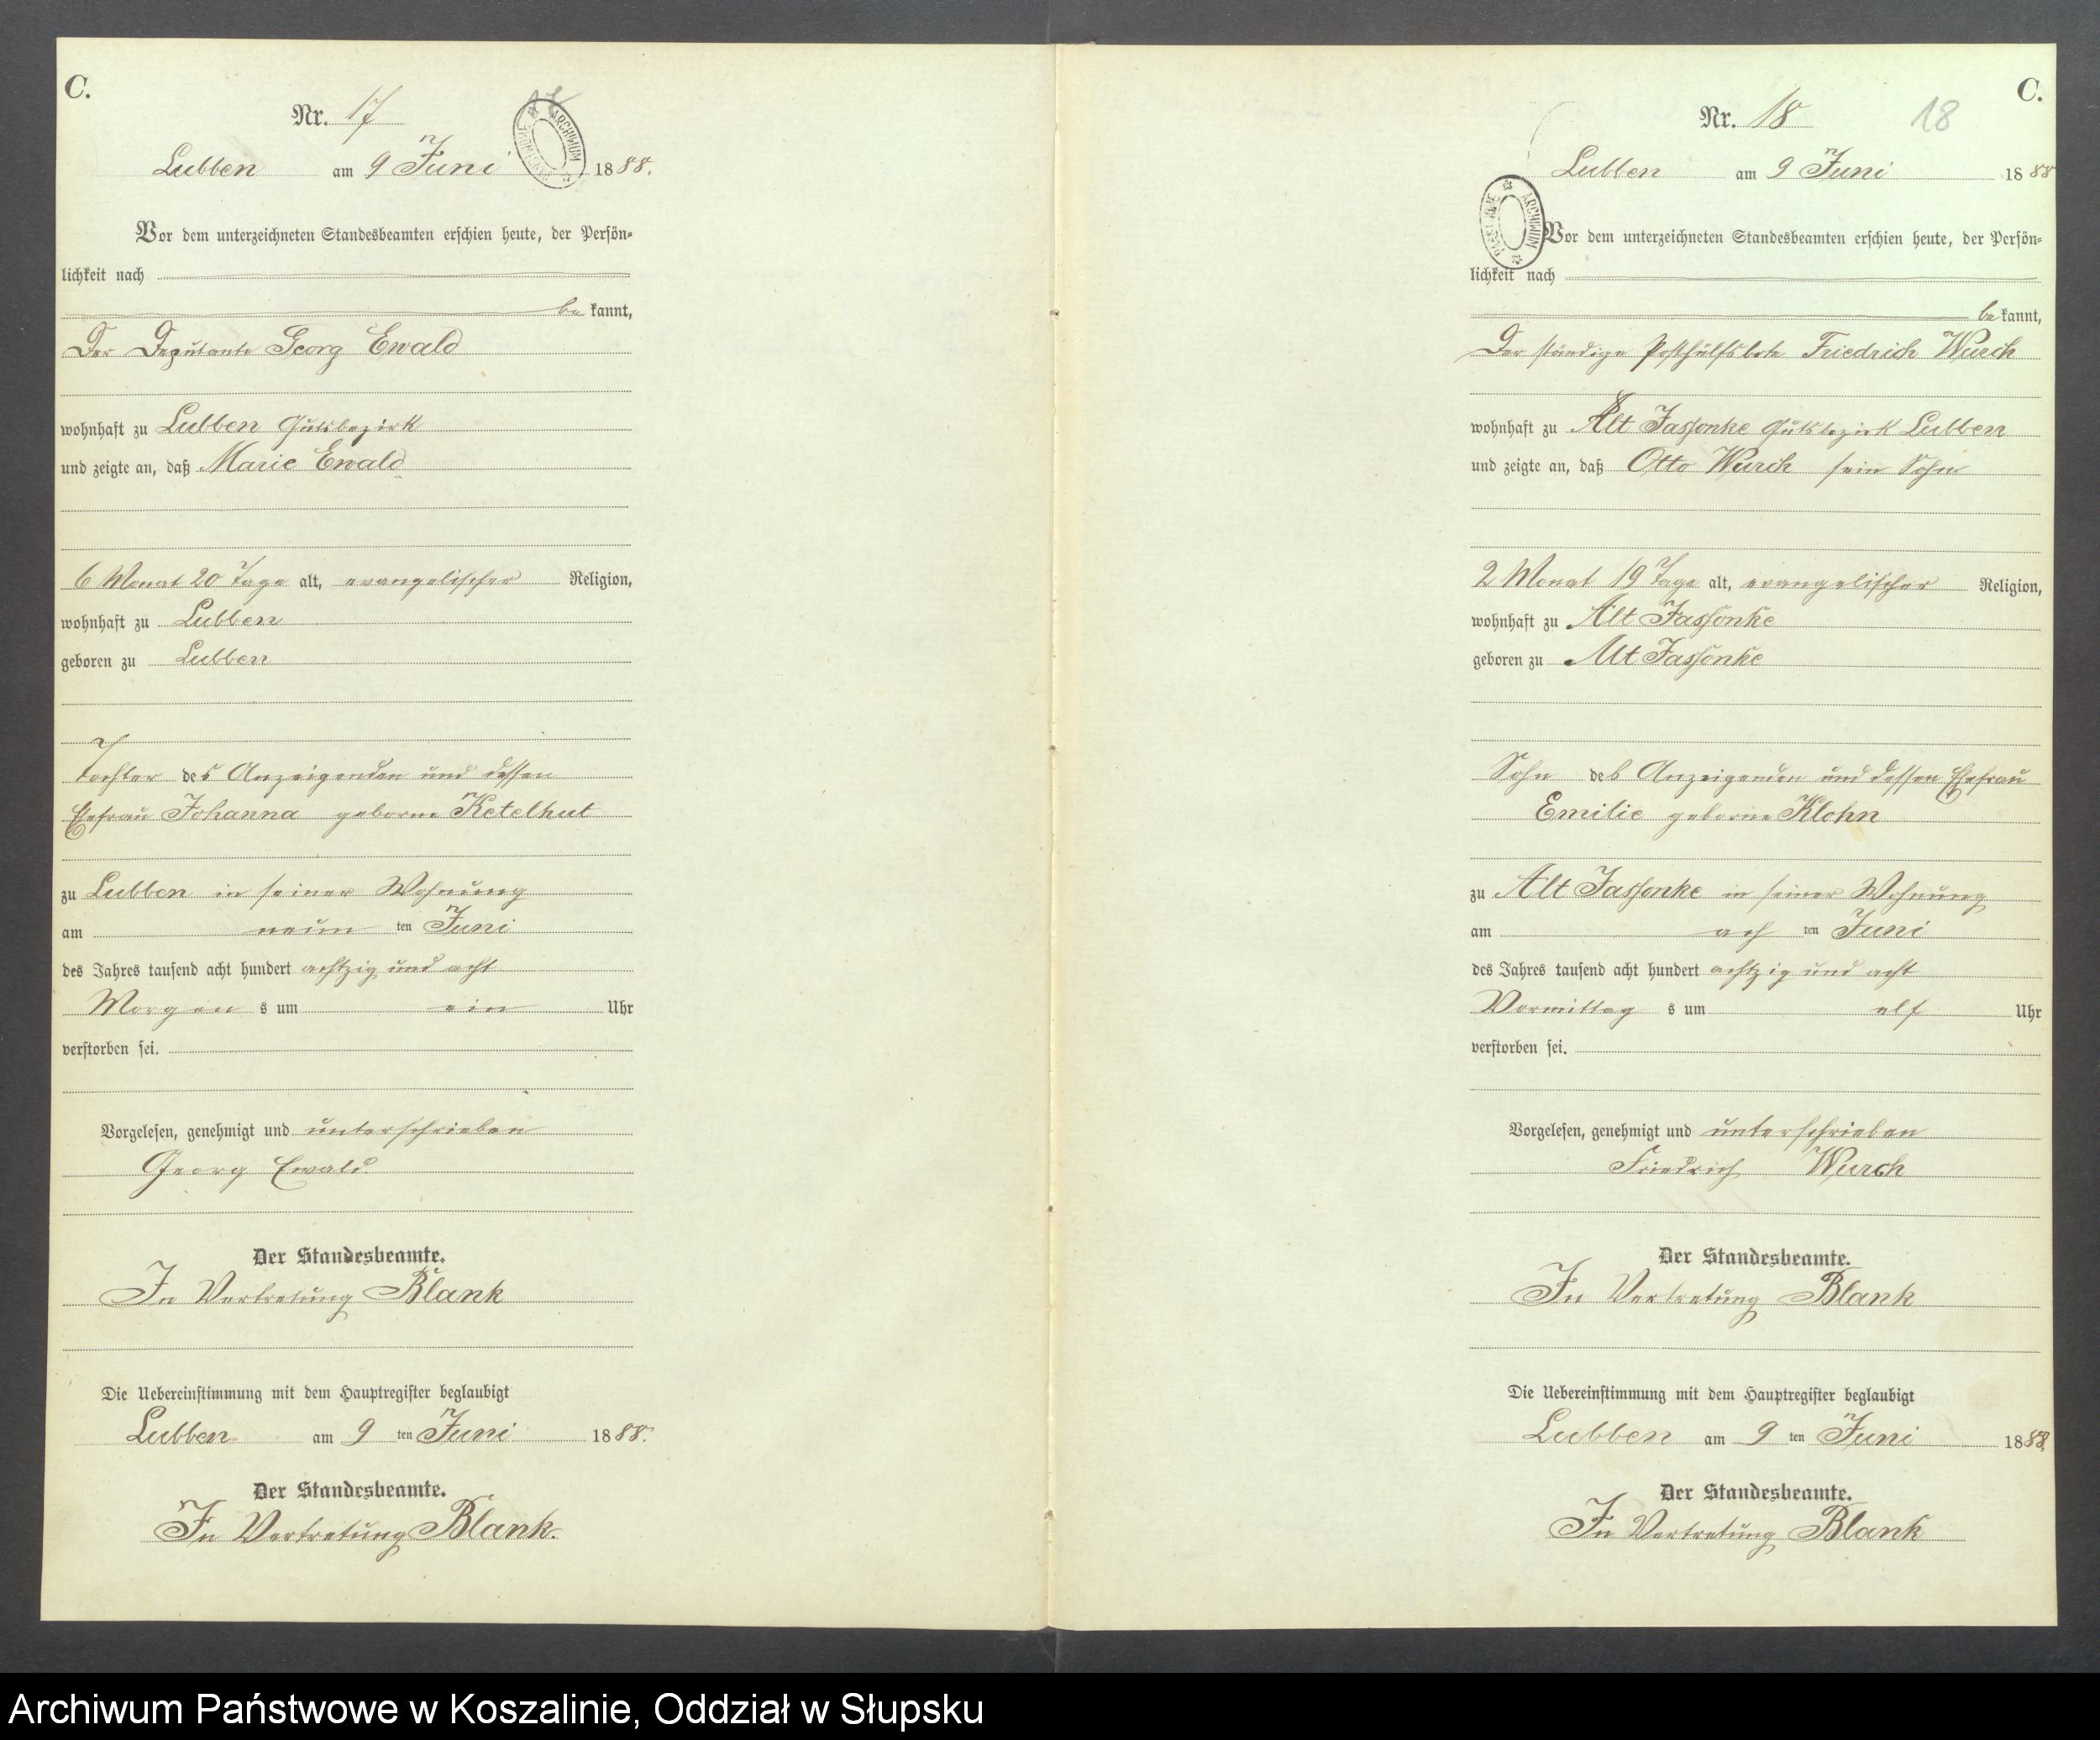 C.
Nr. 17
17
ARCHIWUM
Lubben am 9 Juni 1888.
Vor dem unterzeichneten Standesbeamten erschien heute, der Persön-
lichkeit nach
be kannt,
Der Deputante Georg Ewald
wohnhaft zu Lubben Gutsbezirk
und zeigte an, daß Marie Ewald
6 Monat 20 Tage alt, evangelischer Religion,
wohnhaft zu Lubben
geboren zu Lubben
Tochter des Anzeigenden und dessen
Ehefrau Johanna geborne Ketelhut
zu Lubben in seiner Wohnung
am neun ten Juni
des Jahres tausend acht hundert achtzig und acht
Morgen s um ein Uhr
verstorben sei.
Vorgelesen, genehmigt und unterschrieben
Georg Ewald
Der Standesbeamte.
In Vertretung Blank
Die Uebereinstimmung mit dem Hauptregister beglaubigt
Lubben am 9 ten Juni 1888.
Der Standesbeamte.
In Vertretung Blank.
C.
Nr. 18
18
Lubben am 9 Juni 1888
ARCHIWUM
Vor dem unterzeichneten Standesbeamten erschien heute, der Persön-
lichkeit nach
be kannt,
Der ständige Posthülfsbote Friedrich Wurch
wohnhaft zu Alt Jassonke Gutsbezirk Lubben
und zeigte an, daß Otto Wurch sein Sohn
2 Monat 19 Tage alt, evangelischer Religion,
wohnhaft zu Alt Jassonke
geboren zu Alt Jassonke
Sohn des Anzeigenden und dessen Ehefrau
Emilie geborne Klohn
zu Alt Jassonke in seiner Wohnung
am ach ten Juni
des Jahres tausend acht hundert achtzig und acht
Vormittag s um elf Uhr
verstorben sei.
Vorgelesen, genehmigt und unterschrieben
Friedrich Wurch
Der Standesbeamte.
In Vertretung Blank
Die Uebereinstimmung mit dem Hauptregister beglaubigt
Lubben am 9 ten Juni 1888.
Der Standesbeamte.
In Vertretung Blank
Archiwum Państwowe w Koszalinie, Oddział w Słupsku